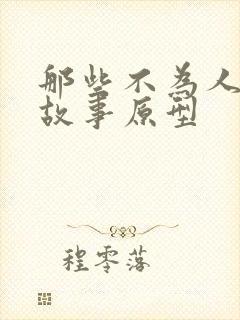 那些不为人
故事原型
程零落